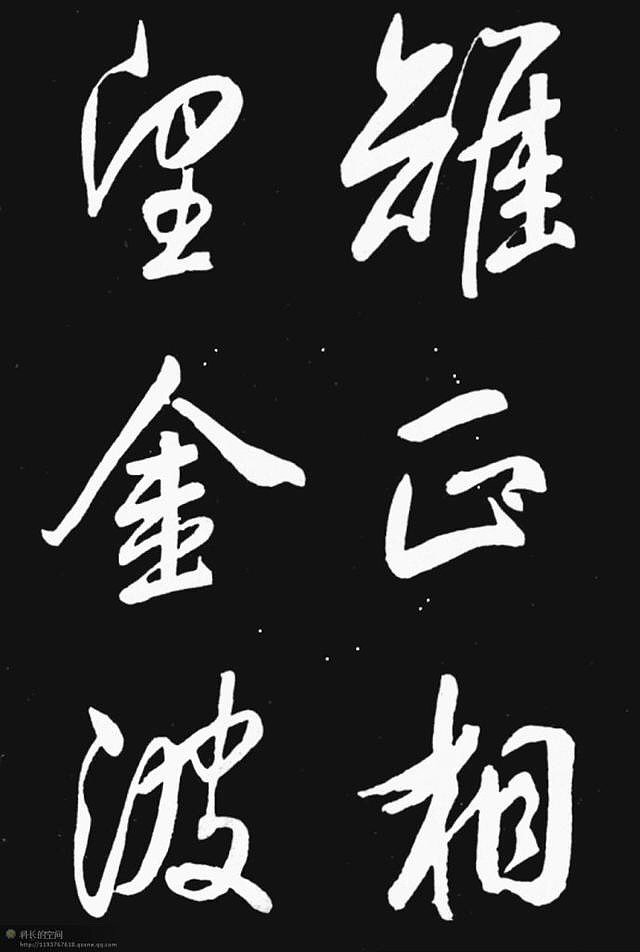 雉正相
望金波
科长的空间
http://1193767618.qzone.qq.com